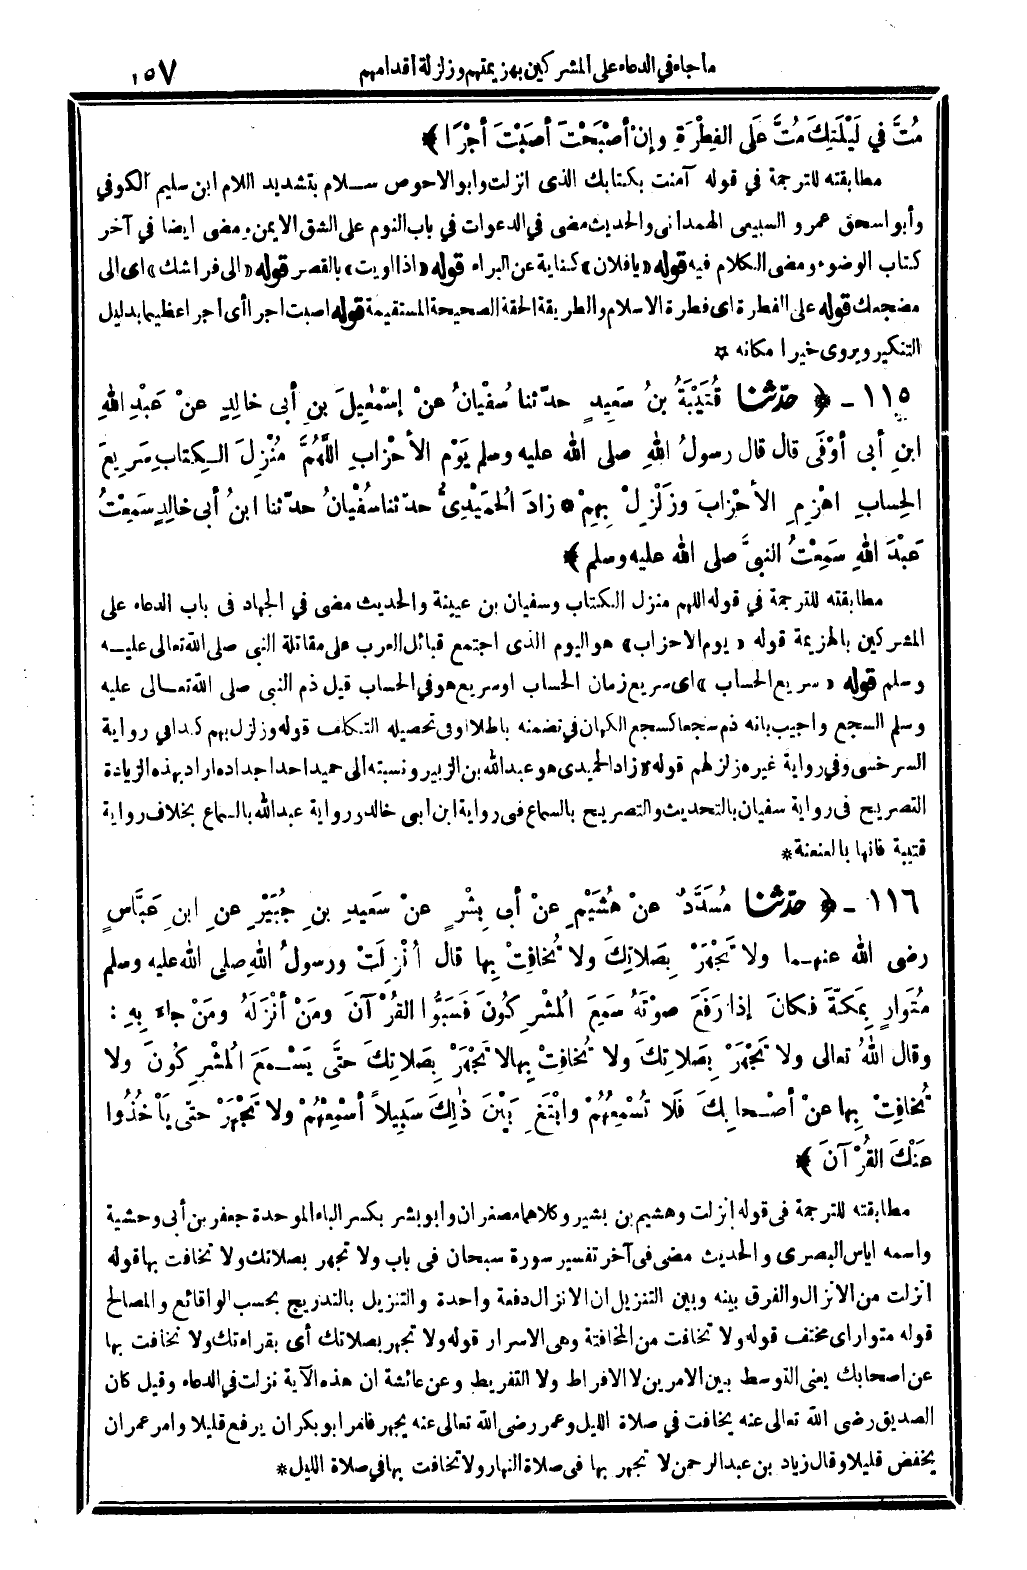 ما جاء في الدعاء على المشركين بهزيمتهم وزلزلة أقدامهم ١٥٧
مُتَّ في لَيْلَتِكَ مُتَّ عَلَى الفِطْرَةِ وإنْ أصْبَحْتَ أصَبْتَ أجْرًا ﴾
مطابقته للترجمة في قوله آمنت بكتابك الذى انزلت وابو الاحوص سلام بتشديد اللام ابن سليم الكوفي
وأبو اسحق عمرو السبيعى الهمدانى والحديث مضى في الدعوات في باب النوم على الشق الايمن ومضى ايضا في آخر
كتاب الوضوء ومضى الكلام فيه قوله «يافلان» كناية عن البراء قوله «اذا اويت» بالقصر قوله «الى فراشك» اى الى
مضجعك قوله على الفطرة اى فطرة الاسلام والطريقة الحقة الصحيحة المستقيمة قوله اصبت اجرا أى اجرا عظيما بدليل
التنكير ويروى خيرا مكانه ✡
١١٥ - ﴿ حدّثنا قُتَيْبَةُ بنُ سَعِيدٍ حدّثنا سُفْيانُ عنْ إسْمٰعِيلَ بنِ أبى خالِدٍ عنْ عَبْدِ اللهِ
ابنِ أبى أوْفَى قال قال رسولُ اللهِ صلى الله عليه وسلم يَوْمَ الأحْزابِ اللَّهُمَّ مُنْزِلَ الـكِتابِ سَرِيعَ
الحِسابِ اهْزِمِ الأحْزابَ وزَلْزِلْ بِهِمْ • زادَ الحُمَيْدِىُّ حدّثنا سُفْيانُ حدّثنا ابنُ أبى خالِدٍ سَمِعْتُ
عَبْدَ اللهِ سَمِعْتُ النبىَّ صلى الله عليه وسلم ﴾
مطابقته للترجمة في قوله اللهم منزل الكتاب وسفيان بن عيينة والحديث مضى في الجهاد فى باب الدعاء على
المشركين بالهزيمة قوله «يوم الاحزاب» هو اليوم الذى اجتمع قبائل العرب على مقاتلة النبى صلى الله تعالى عليه
وسلم قوله «سريع الحساب» اى سريع زمان الحساب او سريع هو في الحساب قيل ذم النبى صلى الله تعالى عليه
وسلم السجع واجيب بانه ذم سجعا كسجع الكهان في تضمنه باطلا وفى تحصيله التكلف قوله وزلزل بهم كذا في رواية
السرخسى وفي رواية غيره زلزلهم قوله «زاد الحميدى هو عبدالله بن الزبير ونسبته الى حميد احد اجداده اراد بهذه الزيادة
التصريح فى رواية سفيان بالتحديث والتصريح بالسماع فى رواية ابن ابى خالد ورواية عبدالله بالسماع بخلاف رواية
قتيبة فانها بالعنعنة *
١١٦ - ﴿ حدّثنا مُسَدَّدٌ عنْ هُشَيْمٍ عنْ أبى بِشْرٍ عنْ سَعِيدِ بنِ جُبَيْرٍ عنِ ابنِ عَبَّاسٍ
رضى الله عنهما ولا تَجْهَرْ بِصَلاتِكَ ولا تُخافِتْ بِها قال أُنْزِلَتْ ورسولُ اللهِ صلى الله عليه وسلم
مُتَوارٍ بِمَكّةَ فَكانَ إذا رَفَعَ صَوْتَهُ سَمِعَ المُشْرِكُونَ فَسَبُّوا القُرْآنَ ومَنْ أنْزَلَهُ ومَنْ جاءَ بِهِ :
وقال اللهُ تعالى ولا تَجْهَرْ بِصَلاتِكَ ولا تُخافِتْ بِها لا تَجْهَرْ بِصَلاتِكَ حتَّى يَسْمَعَ المُشْرِكُونَ ولا
تُخافِتْ بِها عنْ أصْحابِكَ فَلا تُسْمِعُهُمْ وابْتَغِ بَيْنَ ذٰلِكَ سَبِيلاً أسْمِعْهُمْ ولا تَجْهَرْ حتّى يَأْخُذُوا
عَنْكَ القُرْآنَ ﴾
مطابقته للترجمة فى قوله انزلت وهشيم بن بشير وكلاهما مصغران وابو بشر بكسر الباء الموحدة جعفر بن أبى وحشية
واسمه اياس البصرى والحديث مضى فى آخر تفسير سورة سبحان فى باب ولا تجهر بصلاتك ولا تخافت بها قوله
انزلت من الانزال والفرق بينه وبين التنزيل ان الانزال دفعة واحدة والتنزيل بالتدريج بحسب الوقائع والمصالح
قوله متوار اى مختف قوله ولا تخافت من المخافتة وهى الاسرار قوله ولا تجهر بصلاتك أى بقراءتك ولا تخافت بها
عن اصحابك يعنى التوسط بين الامرين لا الافراط ولا التفريط وعن عائشة ان هذه الآية نزلت في الدعاء وقيل كان
الصديق رضى الله تعالى عنه يخافت في صلاة الليل وعمر رضى الله تعالى عنه يجهر فامر ابو بكر ان يرفع قليلا وامر عمر ان
يخفض قليلا وقال زياد بن عبدالرحمن لا تجهر بها فى صلاة النهار ولا تخافت بها في صلاة الليل *